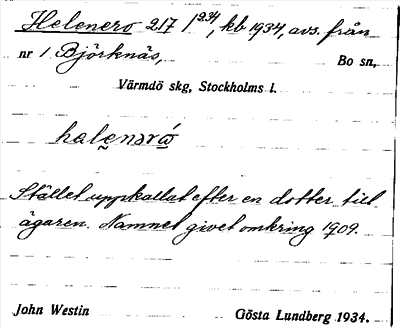 Helenero 217 1/234, kb 1934, avs. från
nr 1 Björknäs, Bo sn,
Värmdö skg, Stockholms l.
helenərώ
Stället uppkallat efter en dotter till
ägaren. Namnet givet omkring 1909.
John Westin Gösta Lundberg 1934.